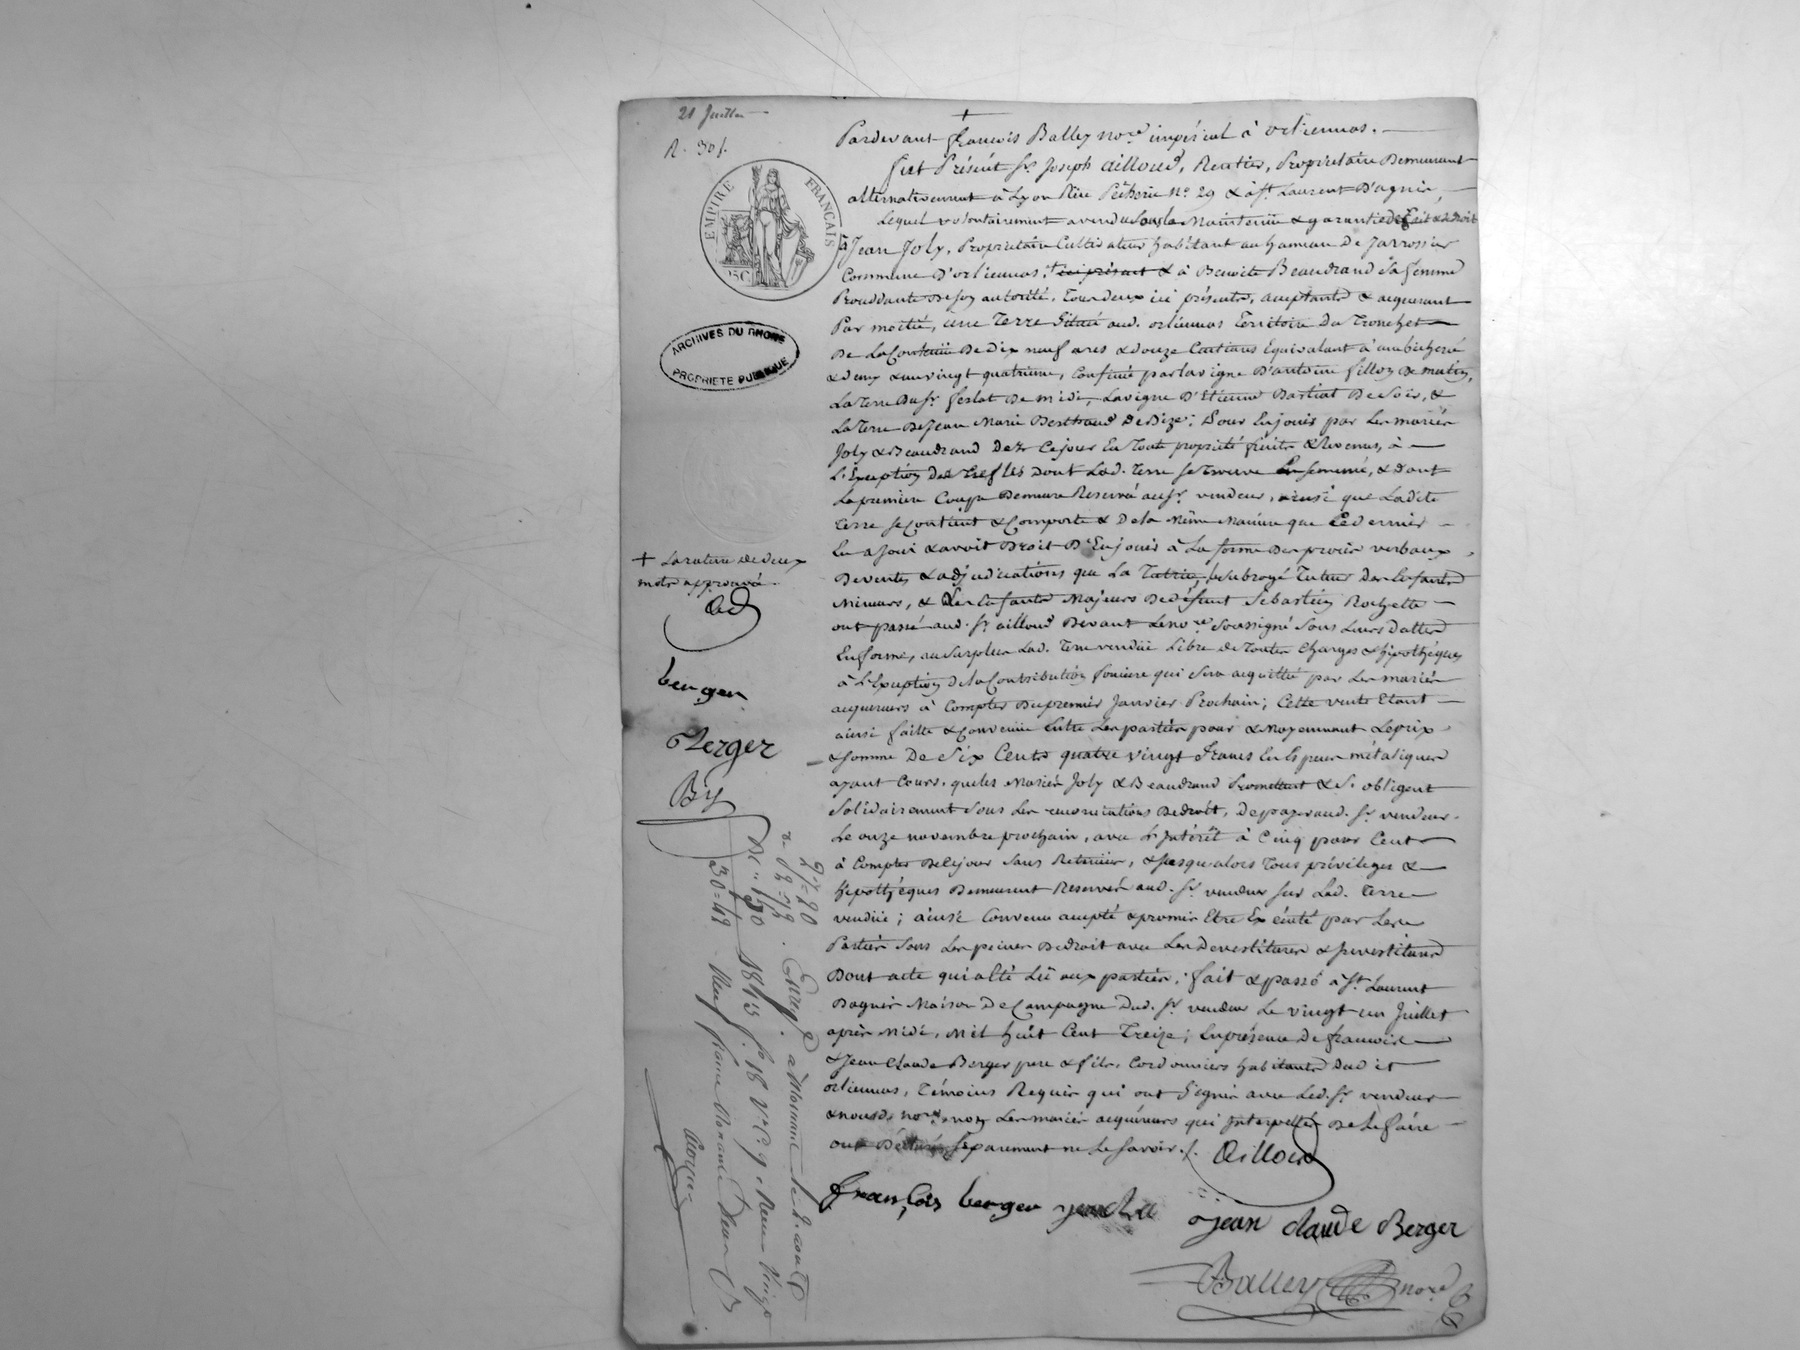 21 Juillet
R. 30 f.
EMPIRE FRANÇAIS
25C.
ARCHIVES DU RHONE
PROPRIETE PUBLIQUE
Pardevant françois Balley no.re impérial à orliennas.
fut Présent Sr. Joseph ailloud, Rentier, Propriétaire Demeurant
alternativement à Lyon Rüe Pécherie No. 29 & à St. Laurent D'agnié,
Lequel volontairement a vendu sous la Maintenüe & garantie de fait & de droit
à Jean Joly, Propriétaire Cultivateur habitant au hameau De Jarrossier
Commune D'orliennas, + ici présent & à Benoite Beaudrand Sa femme
Procédante De son autorité, Tous deux ici présents, acceptants & acquerant
Par moitié, une Terre Située aud. orliennas Territoire Du Tronchet
De La Contenüe De Dix neuf ares & douze Centiares Equivalant à une bicherée
& deux & un vingt quatrieme, Confinée par la vigne D'antoine fillon De matin,
La Terre Du Sr. ferlat De midi, La vigne D'Etienne Bastiat De Soir, &
La Terre De Jean Marie Berthaud De Bize; Pour En jouir par Les mariés
Joly & Beaudrand Dez Ce jour En Toute propriété fruits & Revenus, à
L'Exception Des Trefles Dont Lad. Terre Se Trouve Ensemencé, & dont
La premiere Coupe Demeure Reservée au Sr. vendeur, ainsi que Ladite
Terre Se Contient & Comporte & De la Même Maniere que Ce dernier
En a Joui & avoit Droit D'En jouir à La forme Des procès verbaux
De ventes & adjudications que La Tutrice, Le Subrogé Tuteur Des Enfants
Mineurs, & Les Enfants Majeurs De défunt Sébastien Rochette
ont passé aud. Sr. ailloud Devant Le no.re Soussigné Sous Leurs Dattes
En forme, au Surplus Lad. Terre vendüe Libre de Toutes Charges & hipothéques
à L'Exception de la Contribution fonciere qui Sera acquittée par Les mariés
acquereurs à Compter Du premier Janvier Prochain; Cette vente Etant
ainsi faitte & Convenüe Entre Les parties pour & Moyennant Le prix
& Somme De Six Cents quatre vingt francs En Especes métaliques
ayant Cours, que les Mariés Joly & Beaudrand Promettent & S'obligent
Solidairement Sous Les renonciations De droit, De payer aud. Sr. vendeur
Le onze novembre prochain, avec L'Intérêt à Cinq pour Cent
à Compter De Ce jour Sans Retenüe, & Jusqu'alors Tous priviléges &
hipothéques Demeurent Reservés aud. Sr. vendeur Sur Lad. Terre
vendüe; ainsi Convenu accepté & promis Etre Exécuté par Les
Parties Sous Les peines De droit avec Les Devestitures & Investitures
Dont acte qui a Eté Lü aux parties; fait & passé à St. Laurent
Dagnié Maison De Campagne Dud. Sr. vendeur Le vingt un Juillet
après Midi, Mil huit Cent Treize; En présence De françois
& Jean Claude Berger pere & fils, Cordonniers habitants Dud it
orliennas, Témoins Requis qui ont Signé avec Led. Sr. vendeur
& nousd. no.re, non Les mariés acquéreurs qui Interpellés De Le faire
ont Déclaré Séparement ne Le Savoir./.
Ailloud
françois berger
Jean claude Berger
Balley no.re
+ La rature De deux
mots approuvée
Ad
berger
Berger
By
27=20
2=72
30=48
Enreg. à Mornant le 2. aout
1813 fo. 18 Vo. C. 9. Reçu Vingt
Neuf francs